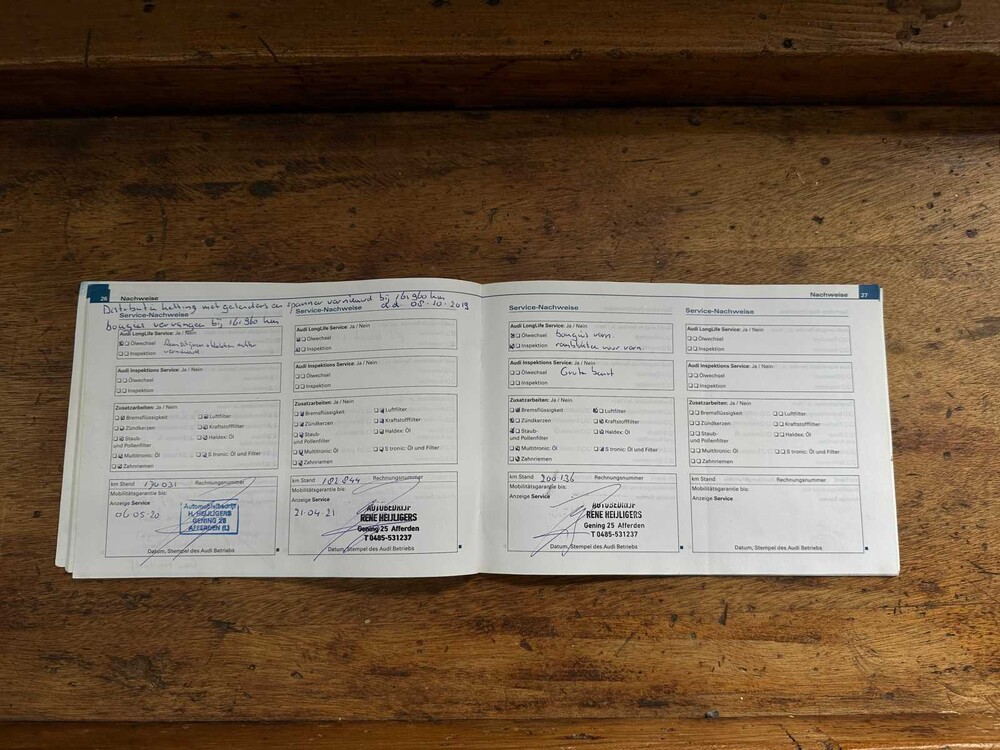 26 Nachweise
Distributie ketting met geleiders en spanner vernieuwd bij 161960 km
d.d. 08-10-2019
bougies vervangen bij 161960 km
Service-Nachweise
Audi LongLife Service: Ja / Nein
Ölwechsel
Inspektion
vernieuwd
Audi Inspektions Service: Ja / Nein
Ölwechsel
Inspektion
Zusatzarbeiten: Ja / Nein
Bremsflüssigkeit
Luftfilter
Zündkerzen
Kraftstofffilter
Staub-
und Pollenfilter
Haldex: Öl
Multitronic: Öl
S tronic: Öl und Filter
Zahnriemen
km Stand 174031 Rechnungsnummer
Mobilitätsgarantie bis:
Anzeige Service
06.05.20
Automobielbedrijf
H. HEIJLIGERS
GENING 25
AFFERDEN (L)
Datum, Stempel des Audi Betriebs
Service-Nachweise
Audi LongLife Service: Ja / Nein
Ölwechsel
Inspektion
Audi Inspektions Service: Ja / Nein
Ölwechsel
Inspektion
Zusatzarbeiten: Ja / Nein
Bremsflüssigkeit
Luftfilter
Zündkerzen
Kraftstofffilter
Staub-
und Pollenfilter
Haldex: Öl
Multitronic: Öl
S tronic: Öl und Filter
Zahnriemen
km Stand 182844 Rechnungsnummer
Mobilitätsgarantie bis:
Anzeige Service
21.04.21
AUTOBEDRIJF
RENE HEIJLIGERS
Gening 25 Afferden
T 0485-531237
Datum, Stempel des Audi Betriebs
Nachweise 27
Service-Nachweise
Audi LongLife Service: Ja / Nein
Ölwechsel bougies vern.
Inspektion voor vern.
Audi Inspektions Service: Ja / Nein
Ölwechsel Grote beurt
Inspektion
Zusatzarbeiten: Ja / Nein
Bremsflüssigkeit
Luftfilter
Zündkerzen
Kraftstofffilter
Staub-
und Pollenfilter
Haldex: Öl
Multitronic: Öl
S tronic: Öl und Filter
Zahnriemen
km Stand 200136 Rechnungsnummer
Mobilitätsgarantie bis:
Anzeige Service
AUTOBEDRIJF
RENE HEIJLIGERS
Gening 25 Afferden
T 0485-531237
Datum, Stempel des Audi Betriebs
Service-Nachweise
Audi LongLife Service: Ja / Nein
Ölwechsel
Inspektion
Audi Inspektions Service: Ja / Nein
Ölwechsel
Inspektion
Zusatzarbeiten: Ja / Nein
Bremsflüssigkeit
Luftfilter
Zündkerzen
Kraftstofffilter
Staub-
und Pollenfilter
Haldex: Öl
Multitronic: Öl
S tronic: Öl und Filter
Zahnriemen
km Stand Rechnungsnummer
Mobilitätsgarantie bis:
Anzeige Service
Datum, Stempel des Audi Betriebs